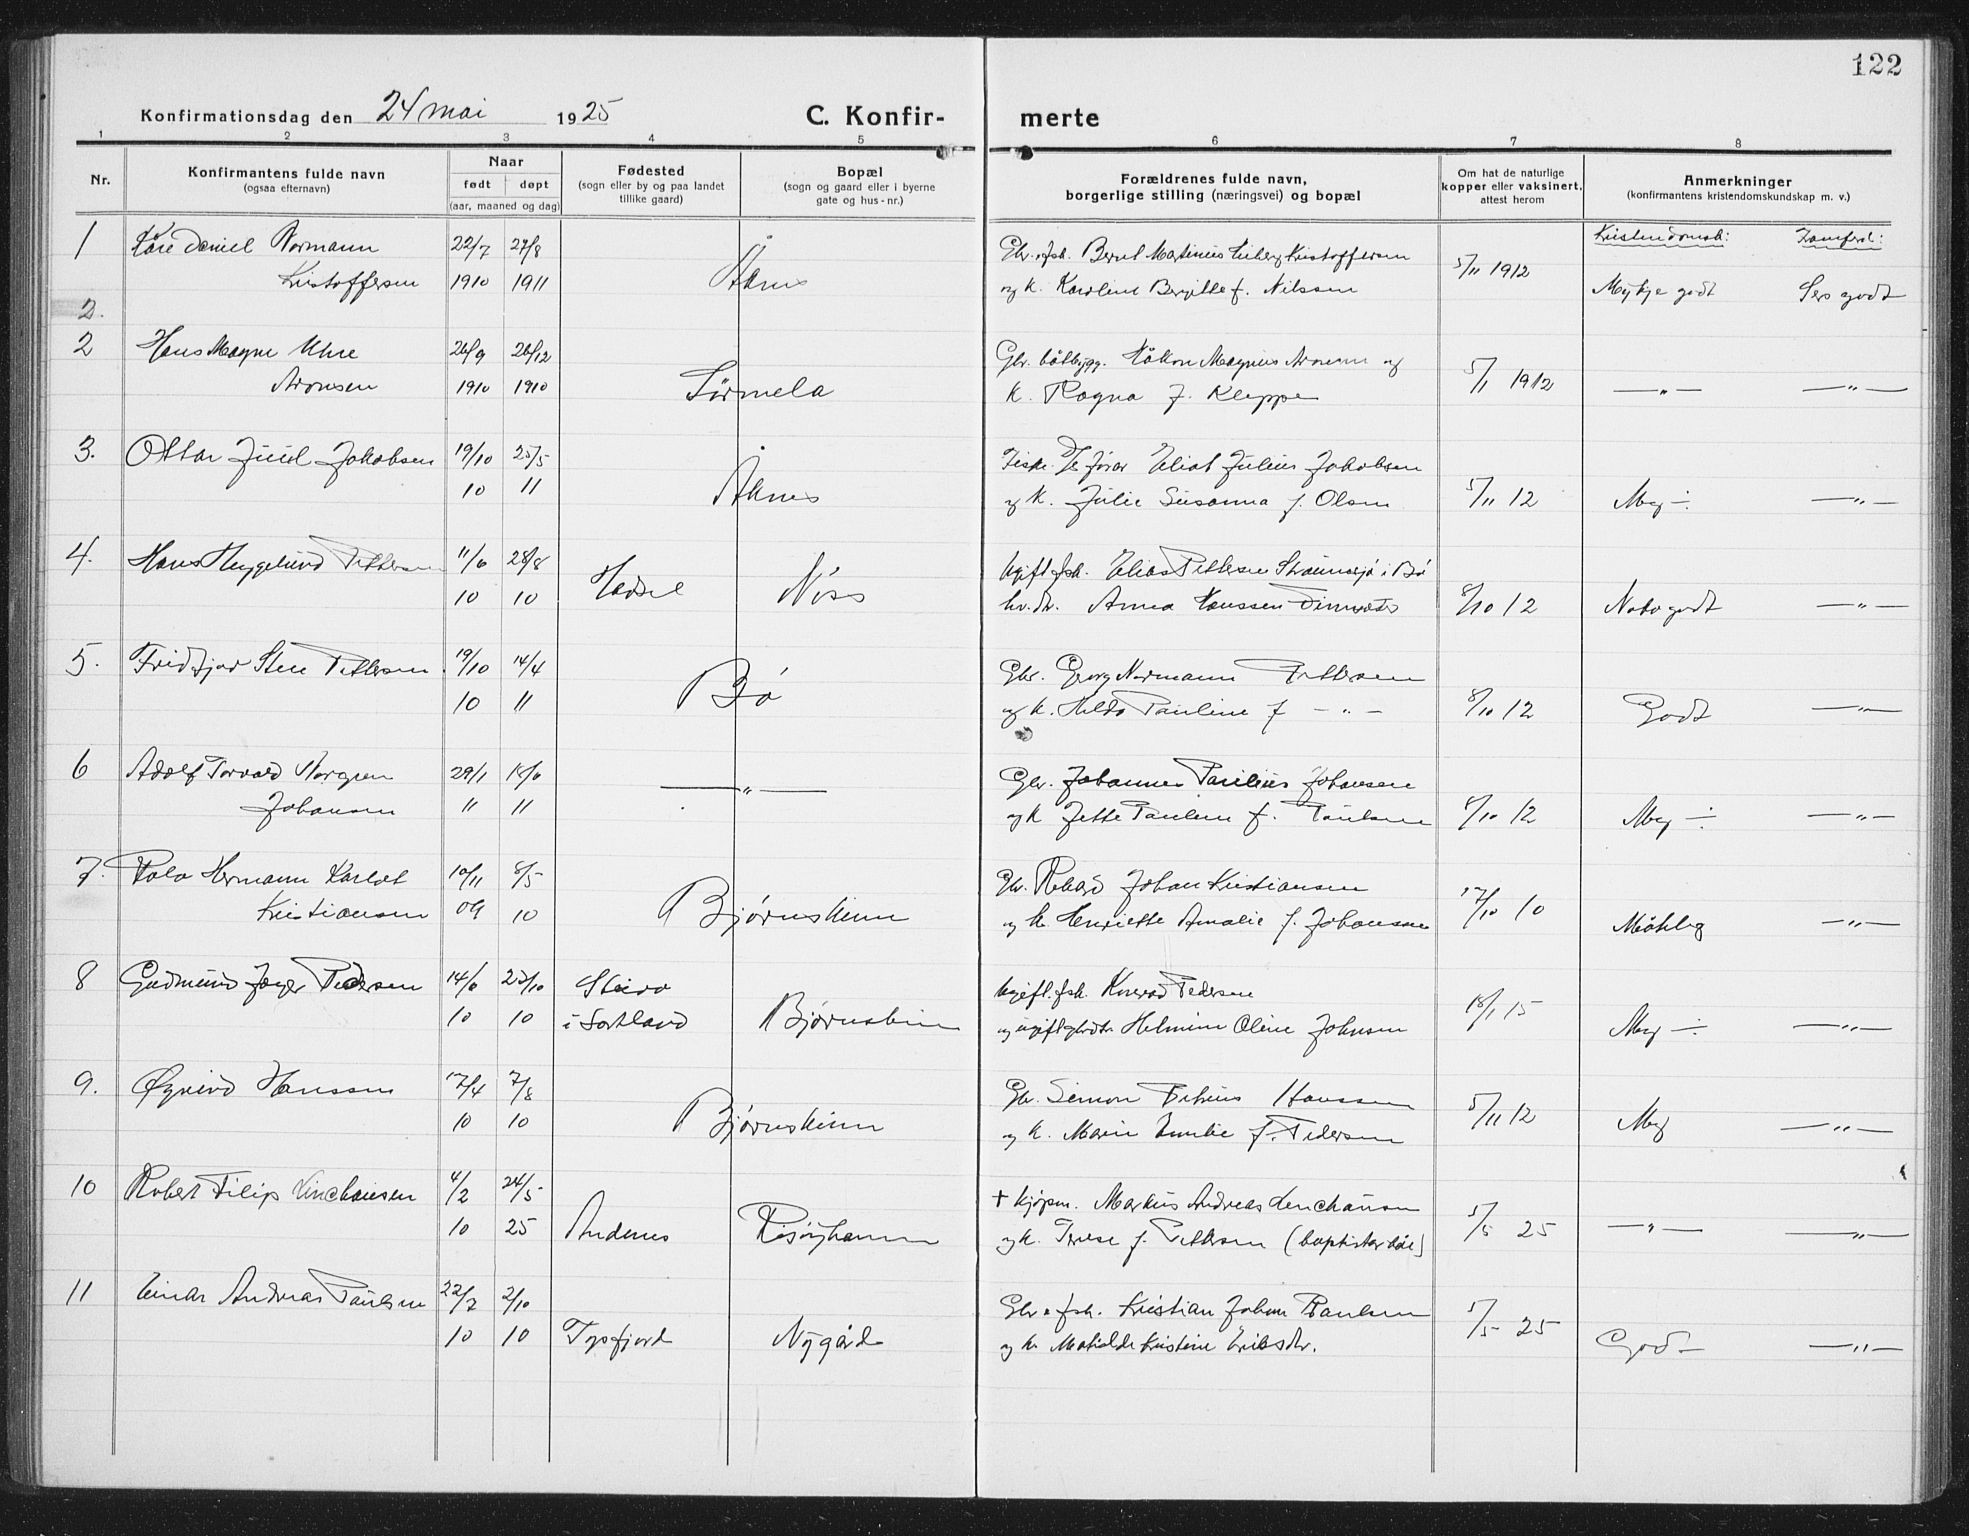 122
Konfirmationsdag den 24 mai 1925
C. Konfir-
merte
1 2 3 4 5 6 7 8
Nr.
Konfirmantens fulde navn
(ogsaa efternavn)
Naar
født døpt
(aar, maaned og dag)
Fødested
(sogn eller by og paa landet
tillike gaard)
Bopæl
(sogn og gaard eller i byerne
gate og hus-nr.)
Forældrenes fulde navn,
borgerlige stilling (næringsvei) og bopæl
Om hat de naturlige
kopper eller vaksinert,
attest herom
Anmerkninger
(konfirmantens kristendomskundskap m. v.)
1 Kåre Daniel Normann 22/7 27/8 Gbr. fsk. Bernt Martinius Kristoffersen Kristendomsk:
Kristoffersen 1910 1911 Åknes og k. Karoline Bergitte f. Nilssen 5/11 1912 Mykje godt Sers godt
2.
2 Hans Magne Uhre 26/9 26/12 Gbr. båtbygg. Håkon Magnus Aronsen og
Aronsen 1910 1910 Sørmela k. Ragna f. Kleppe 5/11 1912 — " — — " —
3. Ottar Juul Jakobsen 19/10 25/5 Eliot Julius Jakobsen
10 11 Åknes og k. Julie Susanna f. Olsen 5/11 12 Meg ÷ — " —
4. Hans Pettersen 11/6 28/8 Hadsel Nöss Ugift fsk. Elias Pettersen i Bø
10 10 Anna Hanssen 8/10 12 Noko godt — " —
5. Fridtjov Sten Pettersen. 19/10 14/4 Bø Gbr. Georg Normann Pettersen
10 11 og k. Hilda Pauline f — " — 8/10 12 Godt — " —
6 Adolf Torvald Norgren 29/1 18/6 — " — Gbr. Johannes Paulius Johansen
Johansen 11 11 og k Jette Pauline f. Paulsen 8/10 12 Meg ÷ — " —
7. Rolv Hermann Karlot 10/11 8/5 Gbr. Rikard Johan Kristiansen
Kristiansen 09 10 Bjørnskinn og k. Henriette Amalie f. Johansen 17/10 10 Måteleg — " —
8 Gudmund Jæger Pedersen 14/6 23/10 Ugift. fsk. Konrad Pedersen
10 10 i Sortland Bjørnskinn og ugift Helmine Oline Johnsen 18/1 15 Meg ÷ — " —
9. Øyvind Hanssen 17/4 7/8 Gbr. Simon Petrus Hanssen
10 10 Bjørnskinn og k. Marie Emilie f. Pedersen 5/11 12 Meg — " —
10 Robert Filip Linchausen 4/2 24/5 + kjøpm. Markus Andreas Linchausen
10 25 Andenes Risøyhamn og k. Terese f. Pettersen 5/5 25 — " — — " —
11 Einar Andreas Paulsen 22/7 2/10 Gbr. fsk. Kristian Johan Paulsen
10 10 Tysfjord Nygård og k. Matilde Kristine Eriksdtr. 5/5 25 Godt — " —